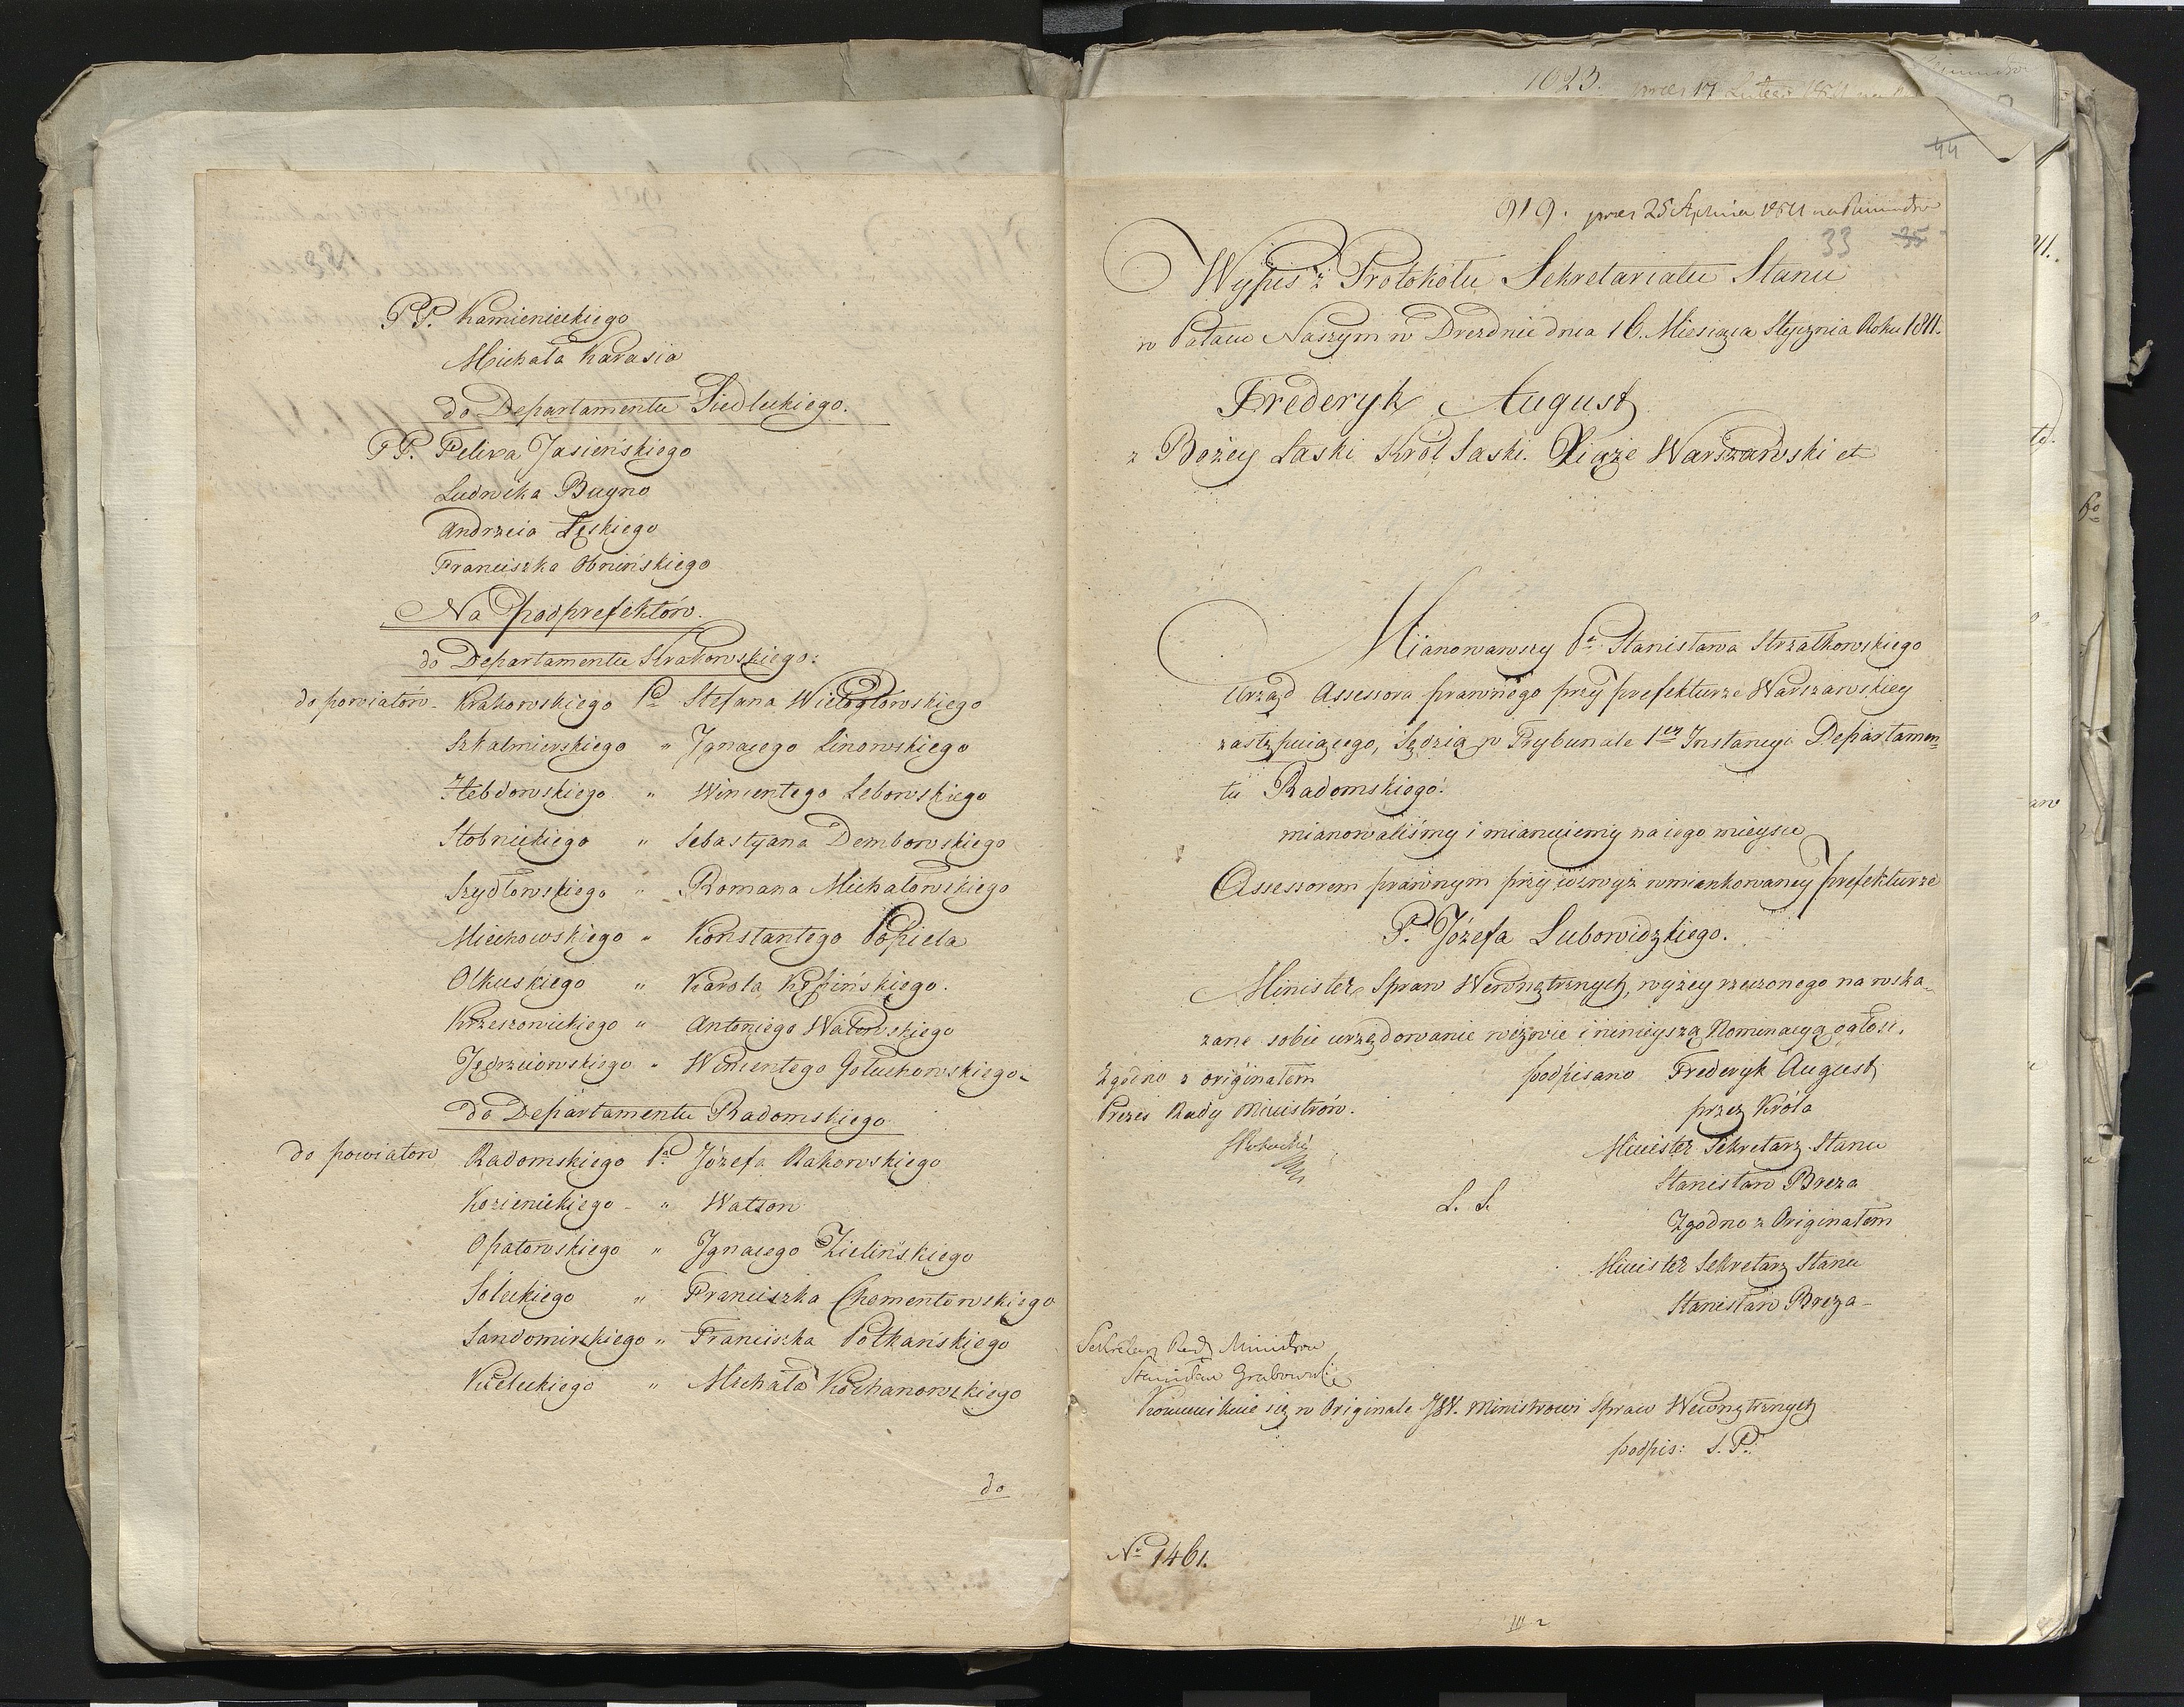 PP. Kamienieckiego
Michała Karasia
do Departamentu Siedleckiego.
PP. Felixa Jasieńskiego
Ludwika Buyno
Andrzeia Łęskiego
Franciszka Obnińskiego
Na podprefektów.
do Departamentu Krakowskiego:
do powiatów - Krakowskiego Pa Stefana Wielogłowskiego
Szkalmierskiego " Ignacego Linowskiego
Hebdowskiego " Wincentego Lebowskiego
Stobnickiego " Sebastyana Dembowskiego
Szydłowskiego " Romana Michałowskiego
Miechowskiego " Konstantego Popiela
Olkuskiego " Karola Kępińskiego.
Krzeszowickiego " Antoniego Watowskiego
Jędrzeiowskiego " Wincentego Gołuchowskiego -
do Departamentu Radomskiego
do powiatów Radomskiego Pa Józefa Rakowskiego
Kozienickiego - " Watson
Opatowskiego " Ignacego Zielińskiego
Soleckiego " Franciszka Chementowskiego
Sandomirskiego " Franciszka Połkańskiego
Kieleckiego " Michała Kochanowskiego
do
1023. prez 17 Lutego 1811
44
919. prez 25 Stycznia 1811
33 35
Wypis z Protokołu Sekretariatu Stanu
w Pałacu Naszym w Dreznie dnia 16. Miesiąca Stycznia Roku 1811.
Frederyk August
z Bożey Łaski Król Saski. Xiąże Warszawski et
Mianowawszy Pa Stanisława Strzałkowskiego
Urząd Assessora prawnego przy prefekturze Warszawskiey
zastępuiącego, Sędzią w Trybunale 1ey Instancyi Departamen=
tu Radomskiego:
mianowaliśmy i mianuiemy na iego mieysce
Assessorem prawnym przy wzwyż wmiankowaney prefekturze
P. Józefa Lubowidzkiego.
Minister Spraw Wewnętrznych, wyżey rzeczonego na wska=
zane sobie urzędowanie wezwie i ninieyszą Nominacyą ogłosi.
Zgodno z originałem podpisano Frederyk August
Prezes Rady Ministrów. przez Króla
Minister Sekretarz Stanu
Stanisław Breza
L. S. Zgodno z Originałem
Minister Sekretarz Stanu
Stanisław Breza -
Sekretarz Rady Ministrów
Stanisław Grabowski
Kommunikuie się w Originale JW. Ministrowi Spraw Wewnętrznych
podpis: S. P.
No 1461.